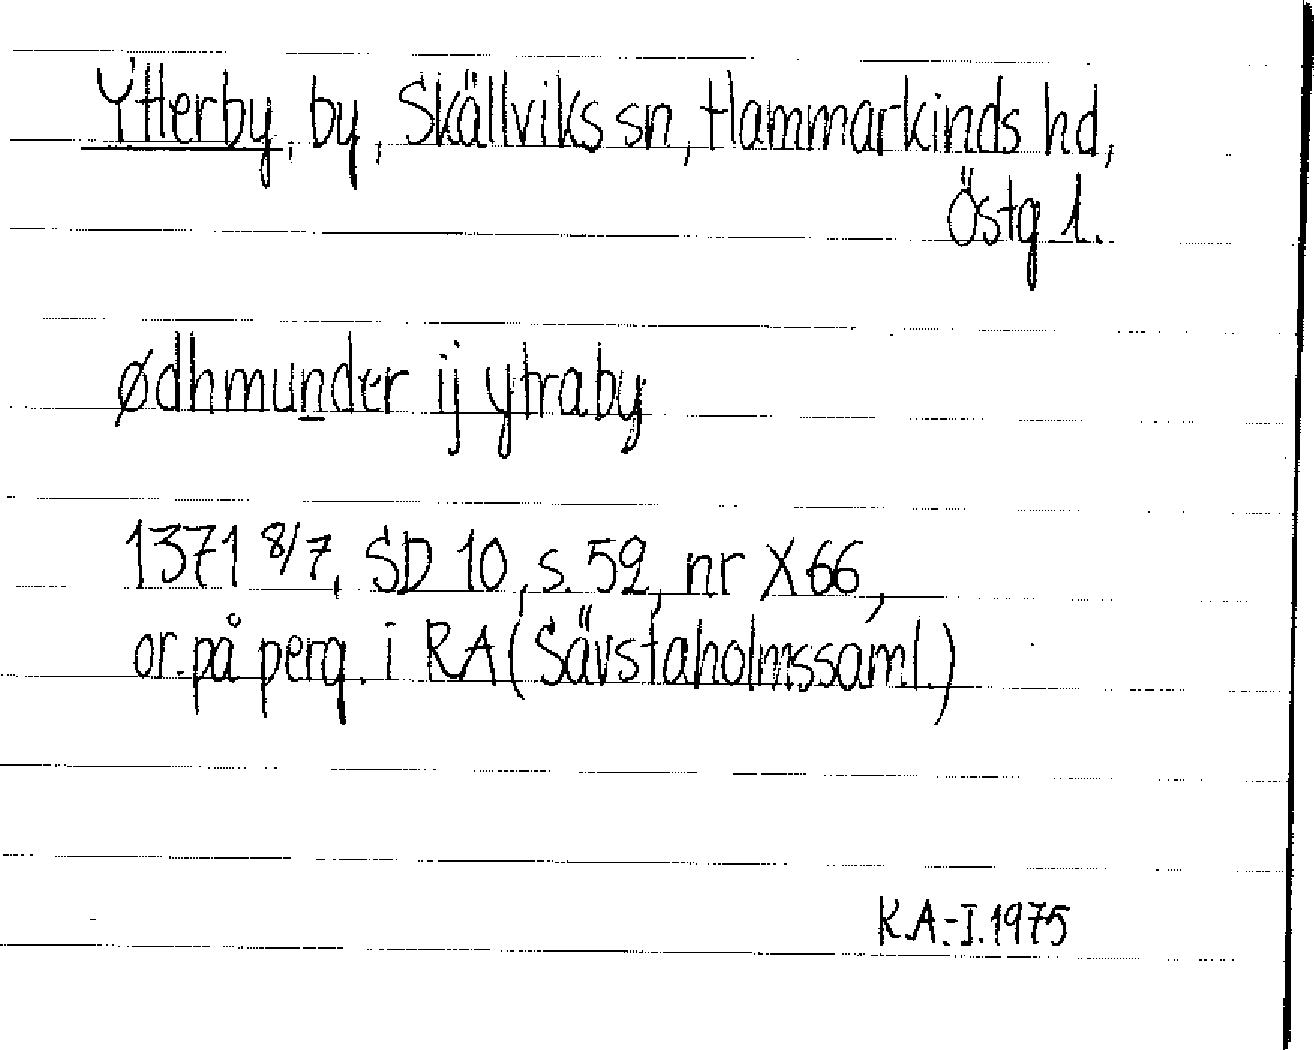 Ytterby, by, Skällviks sn, Hammarkinds hd,
Östg l.
ødhmunder ij ytraby
1371 8/7, SD 10, s. 52, nr X 66,
or. på perg. i RA (Sävstaholmssaml.)
K.A.-I. 1975